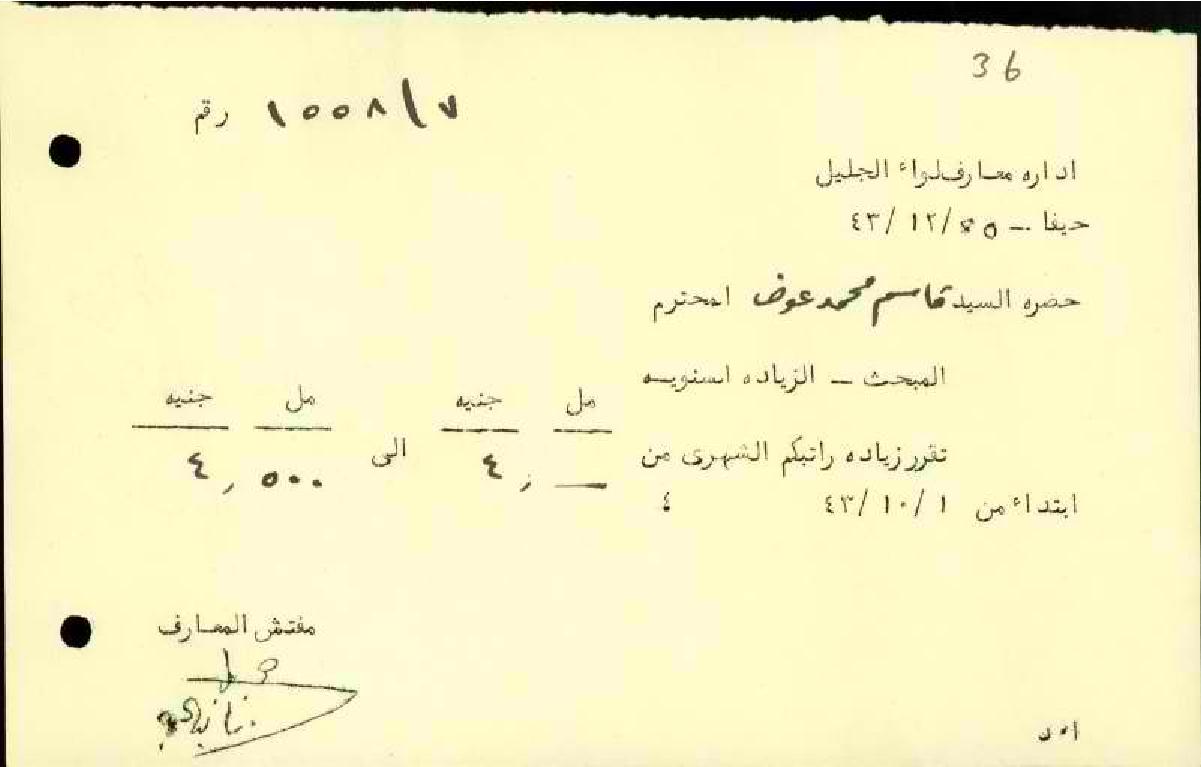 36
رقم ١٥٥٨/٧
اداره معارف لواء الجليل
حيفا ـ /١٢/ ٤٣
حضره السيد قاسم محمد عوض المحترم
المبحث ـ الزياده اسنويه
مل جنيه مل جنيه
تقرر زياده راتبكم الشهرى من — ,٤ الى ٥٠٠ ,٤
ابتداء من ١ /١٠ /٤٣ ٤
مفتش المعارف